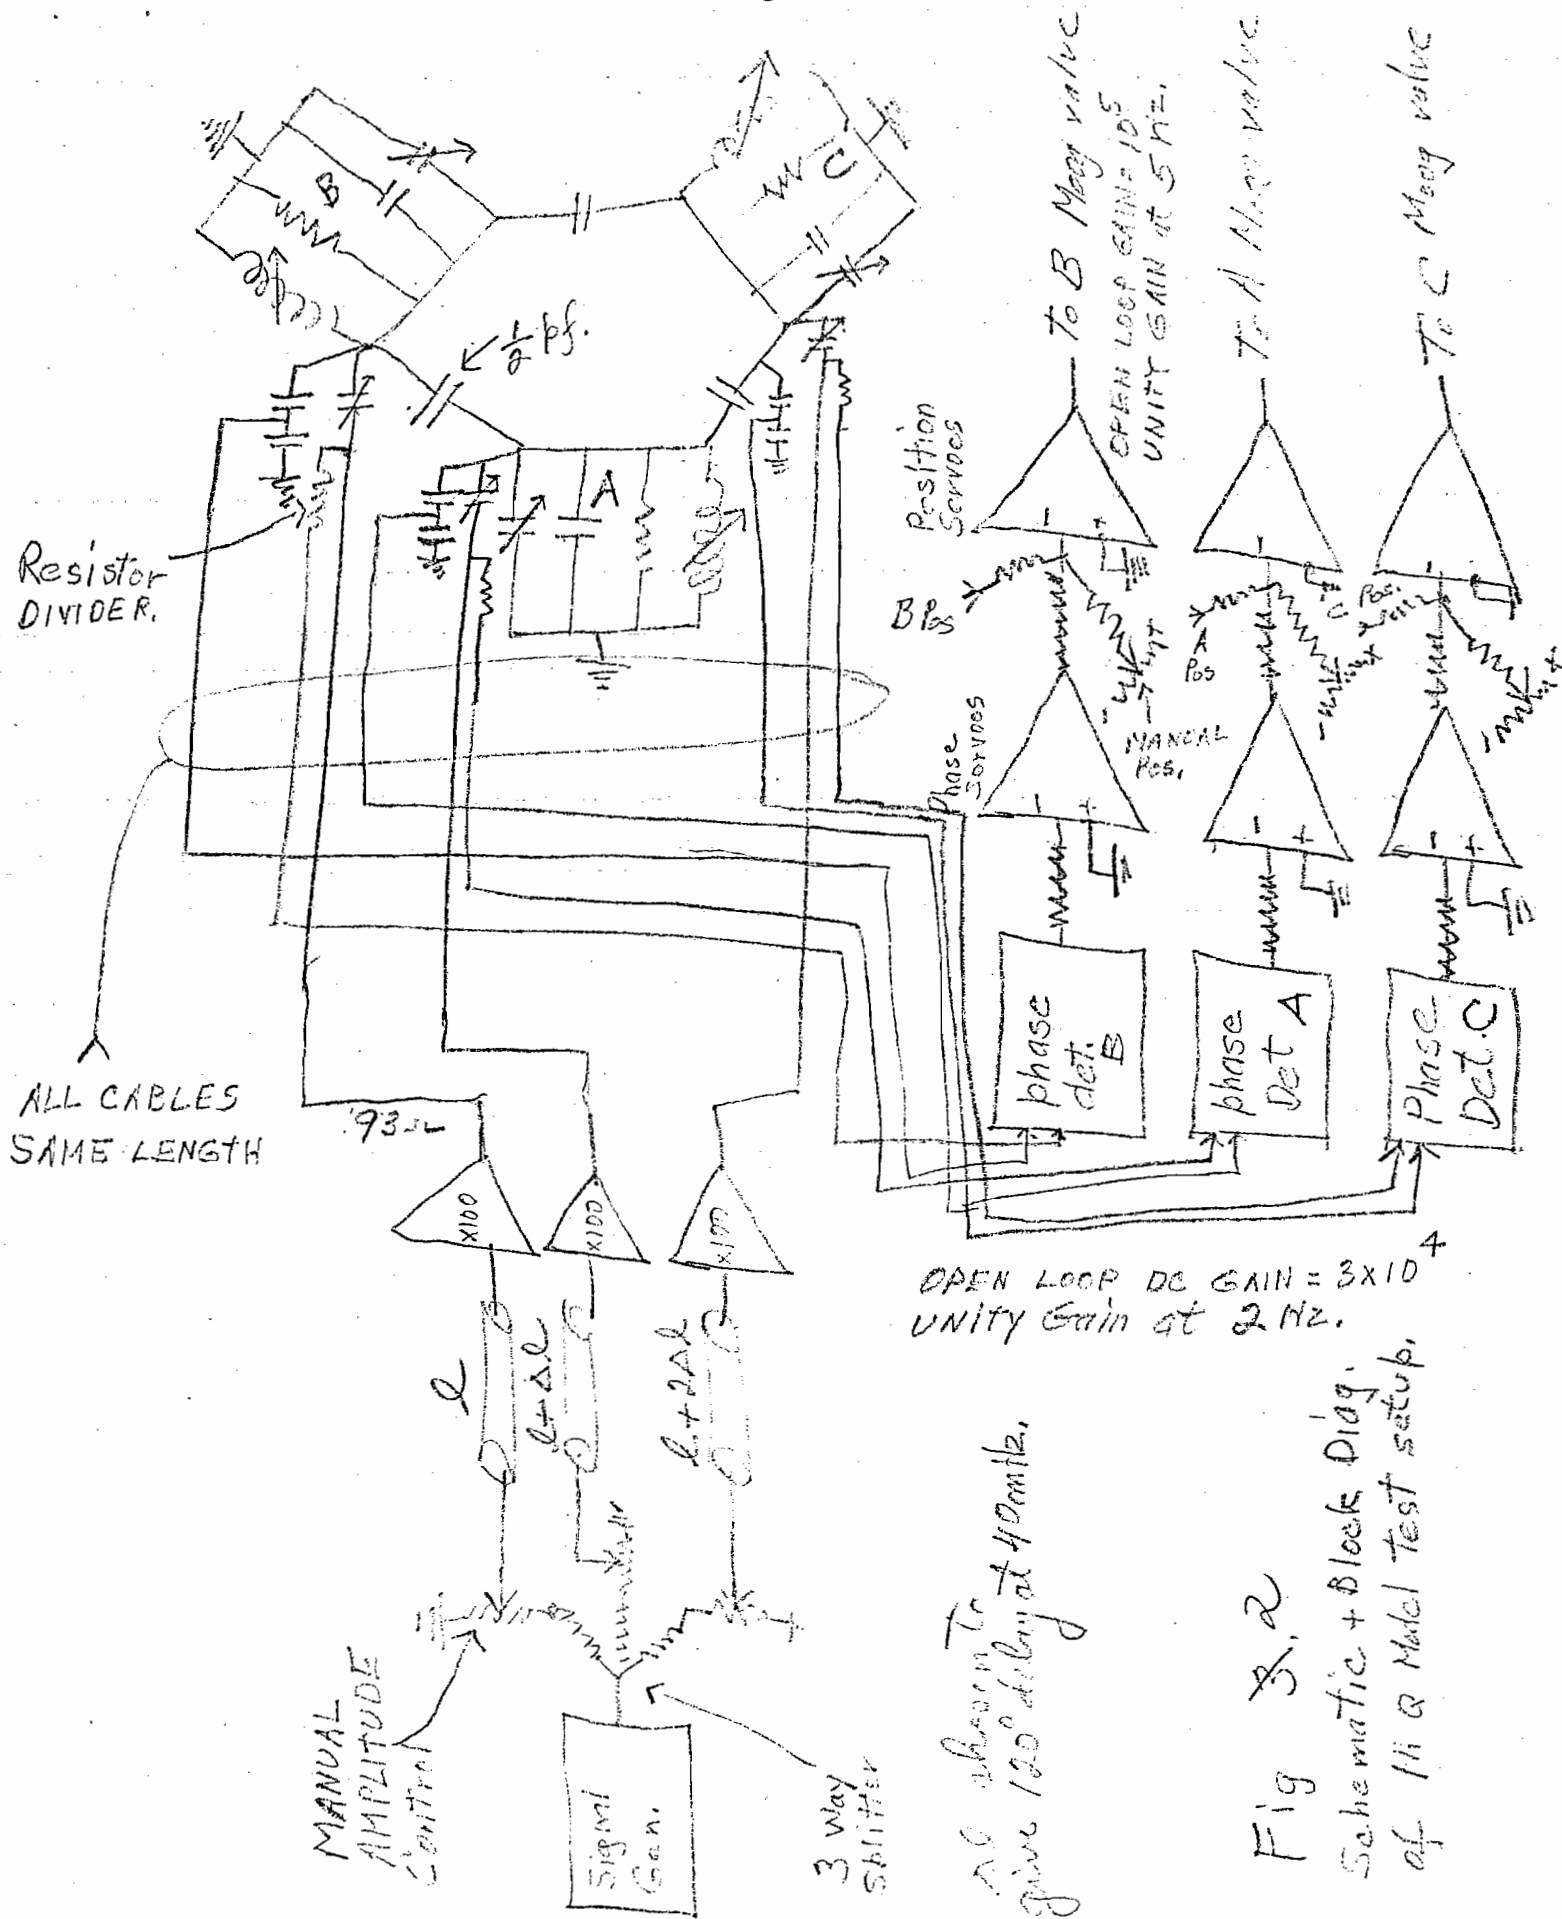 B
C
1/2 pf.
A
Resistor
DIVIDER.
ALL CABLES
SAME LENGTH
93Ω
x100
x100
x100
l
l+Δl
l+2Δl
MANUAL
AMPLITUDE
Control
Signal
Gen.
3 Way
Splitter
Δl chosen to
give 120° delay at 40mHz.
Position
Servoes
B Pos
A
Pos
C
Pos.
- +
MANUAL
Pos.
Phase
Servoes
To B Moog valve
OPEN LOOP GAIN = 10^5
UNITY GAIN at 5 Hz.
To A Moog valve
To C Moog valve
phase
det.
B
phase
Det A
Phase
Det. C
OPEN LOOP DC GAIN = 3x10^4
UNITY Gain at 2 Hz.
Fig 3.2
Schematic + Block Diag.
of Hi Q Model Test setup.